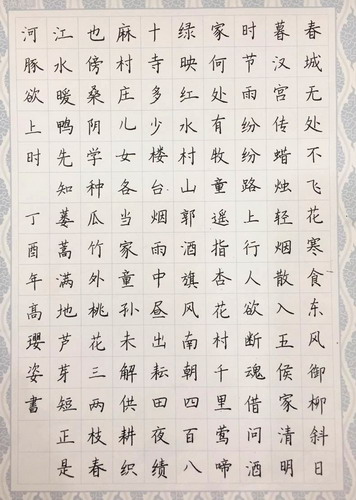 春城无处不飞花寒食东风御柳斜日
暮汉宫传蜡烛轻烟散入五侯家清明
时节雨纷纷路上行人欲断魂借问酒
家何处有牧童遥指杏花村千里莺啼
绿映红水村山郭酒旗风南朝四百八
十寺多少楼台烟雨中昼出耘田夜绩
麻村庄儿女各当家童孙未解供耕织
也傍桑阴学种瓜竹外桃花三两枝春
江水暖鸭先知蒌蒿满地芦芽短正是
河豚欲上时 丁酉年高璎姿書